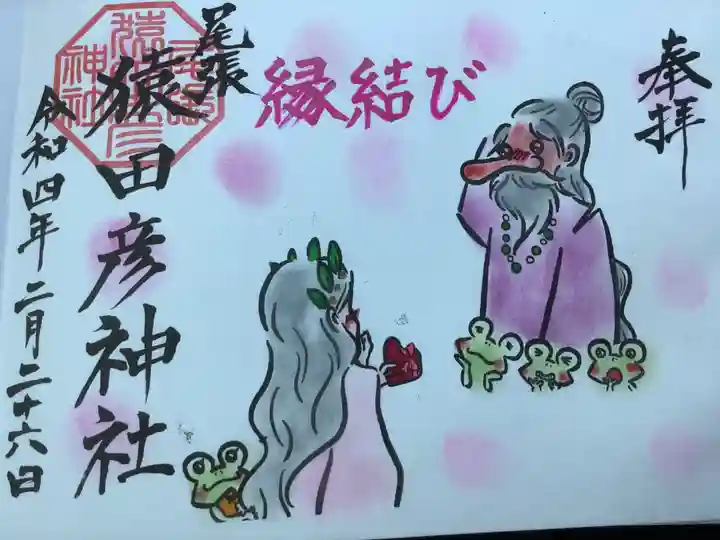 奉拝
縁結び
尾張
猿田彦神社
令和四年二月二十六日